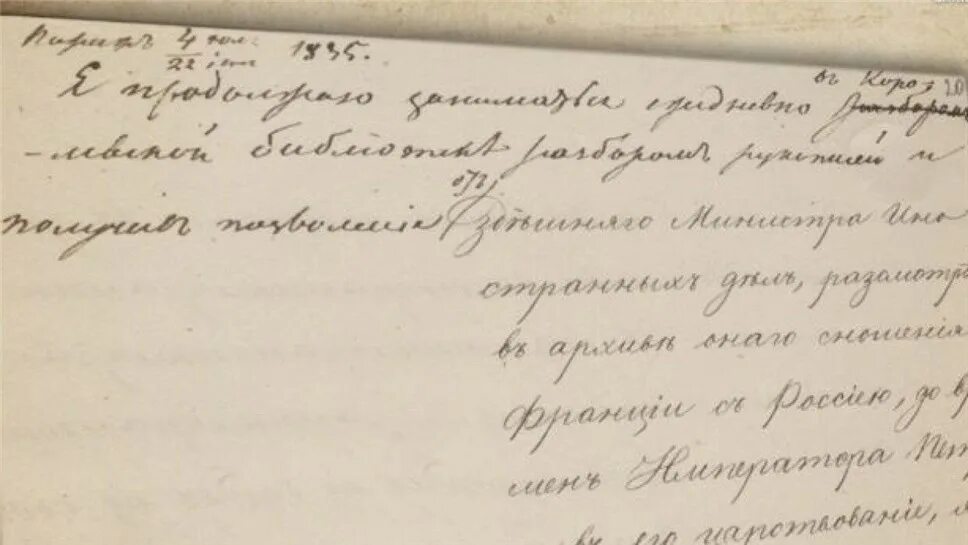 Парижъ 4/22 юл. 1835.
Я продолжаю заниматься ежедневно въ Коро-
-левской библіотекѣ разборомъ рукописей и
получивъ позволеніе отъ здѣшняго Министра Ино
странныхъ дѣлъ, разсмотрѣ
въ архивѣ онаго сношенія
Франціи съ Россіею, до вр
менъ Императора Пет
въ его царствованіе,